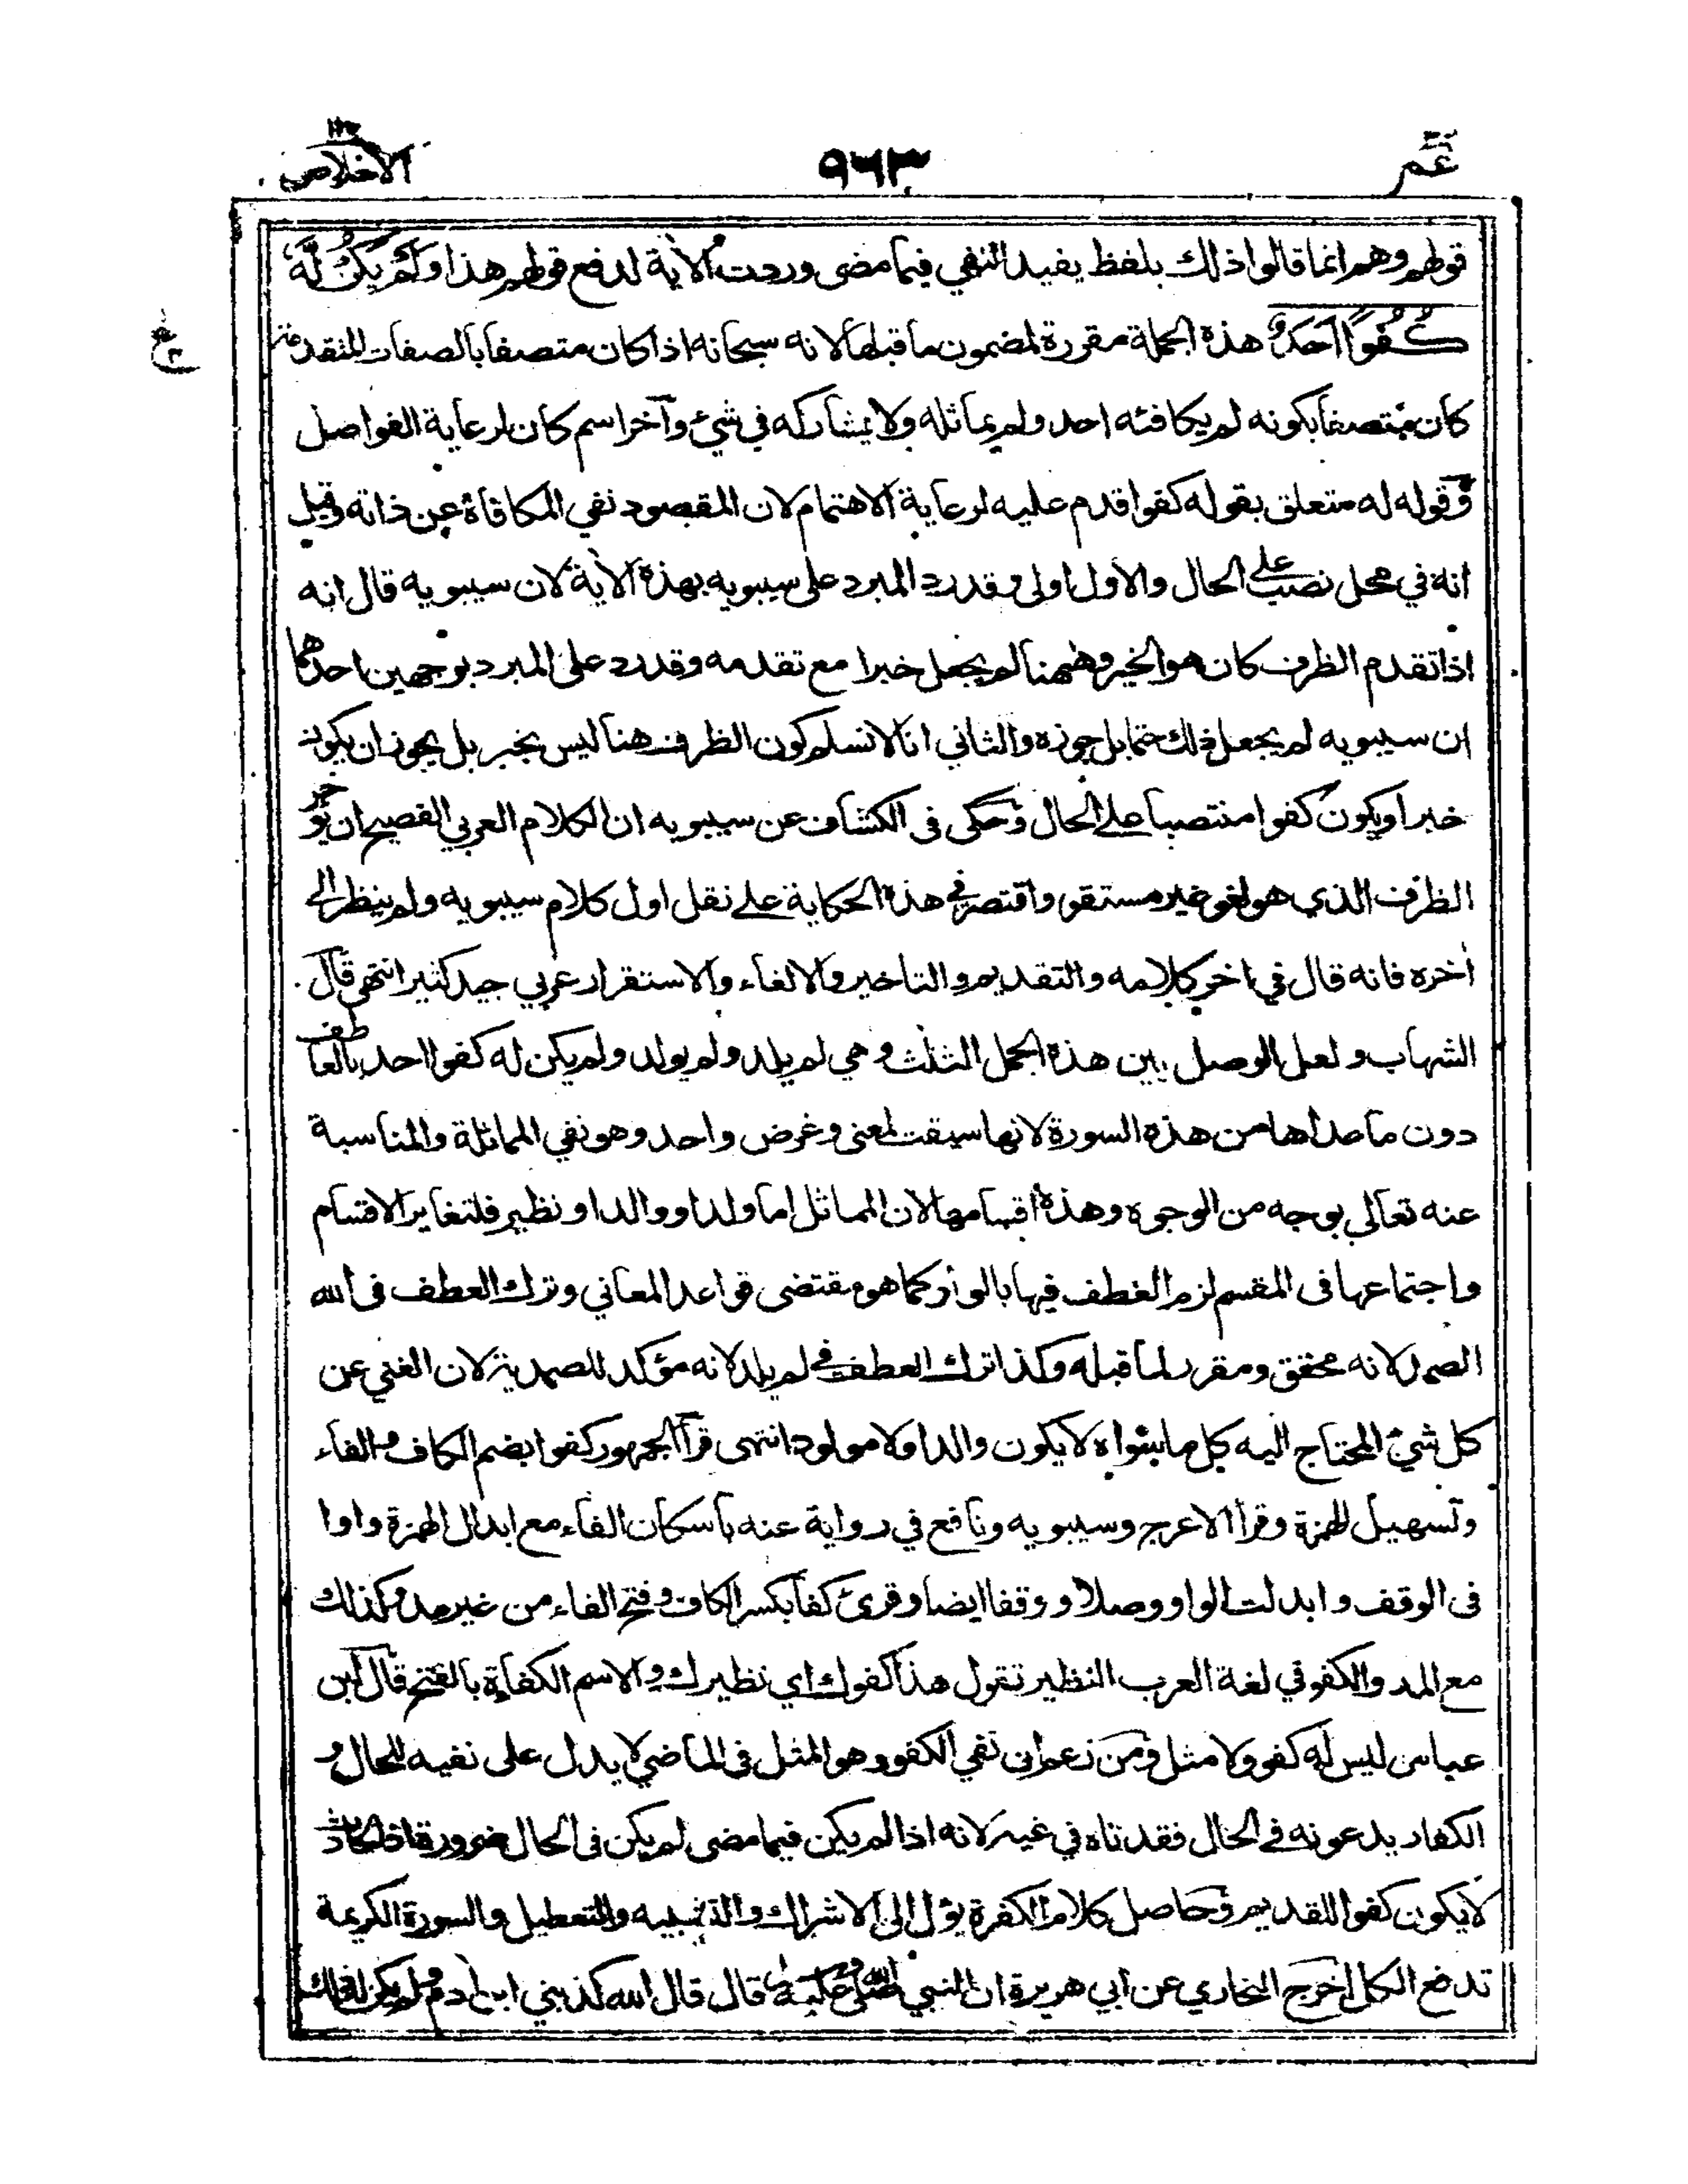 عم
٩٦٣
الاخلاص ١١٢
قولهم وهم انما قالوا ذلك بلفظ يفيد النفي فيما مضى وردت الاية لدفع قولهم هذا وَلَمْ يَكُنْ لَّهٗ
كُفُوًا اَحَدٌ هذه الجملة مقررة لمضمون ما قبلها لانه سبحانه اذا كان متصفا بالصفات المتقدمة
ع
كان متصفا بكونه لم يكافئه احد ولم يماثله ولا يشاركه في شيء وآخر اسم كان لرعاية الفواصل
وقوله له متعلق بقوله كفوا قدم عليه لرعاية الاهتمام لان المقصود نفي المكافاة عن ذاته وقيل
انه في محل نصب على الحال والاول اولى وقد رد المبرد على سيبويه بهذه الاية لان سيبويه قال انه
اذا تقدم الظرف كان هو الخبر وههنا لم يجعل خبرا مع تقدمه وقد رد على المبرد بوجهين احدهما
ان سيبويه لم يجعل ذلك حتما بل جوزه والثاني انا لا نسلم كون الظرف هنا ليس بخبر بل يجوز ان يكون
خبرا ويكون كفوا منتصبا على الحال وحكى فى الكشاف عن سيبويه ان الكلام العربي الفصيح ان يؤخر
الظرف الذي هو لغو غير مستقر واقتصر في هذه الحكاية على نقل اول كلام سيبويه ولم ينظر الى
اخره فانه قال في اخر كلامه والتقديم والتاخير والالغاء والاستقرار عربي جيد كثير انتهى قال
الشهاب ولعل الوصل بين هذه الجمل الثلث وهي لم يلد ولم يولد ولم يكن له كفوا احد بالعاطف
دون ما عداها من هذه السورة لانها سيقت لمعنى وغرض واحد وهو نفي المماثلة والمناسبة
عنه تعالى بوجه من الوجوه وهذه اقسامها لان المماثل اما ولد او والد او نظير فلتغاير الاقسام
واجتماعها فى المقسم لزم العطف فيها بالواو كما هو مقتضى قواعد المعاني وترك العطف فى الله
الصمد لانه محقق ومقرر لما قبله وكذا ترك العطف في لم يلد لانه مؤكد للصمدية لان الغني عن
كل شيء المحتاج اليه كل ما سواه لا يكون والدا ولا مولودا انتهى قرأ الجمهور كفوا بضم الكاف والفاء
وتسهيل الهمزة وقرأ الاعرج وسيبويه ونافع في رواية عنه باسكان الفاء مع ابدال الهمزة واوا
فى الوقف وابدلت الواو وصلا ووقفا ايضا وقرئ كفأ بكسر الكاف وفتح الفاء من غير مد وكذلك
مع المد والكفو في لغة العرب النظير تقول هذا كفوك اي نظيرك والاسم الكفاءة بالفتح قال ابن
عباس ليس له كفو ولا مثل ومن زعم ان نفي الكفو وهو المثل فى الماضي لا يدل على نفيه للحال و
الكفار يدعونه في الحال فقد تاه في غيه لانه اذا لم يكن فيما مضى لم يكن فى الحال ضرورة اذ الحادث
لا يكون كفوا للقديم وحاصل كلام الكفرة يؤل الى الاشراك والتشبيه والتعطيل والسورة الكريمة
تدفع الكل اخرج البخاري عن ابي هريرة ان النبي صلى الله عليه قال قال الله كذبني ابن ادم ولم يكن له ذلك